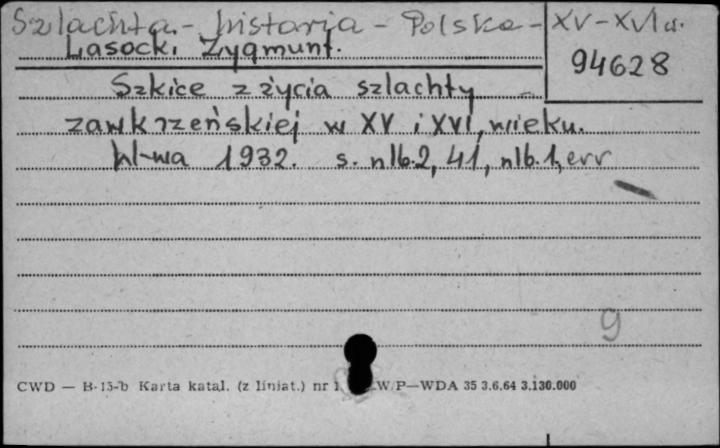 Szlachta - historia - Polska - XV-XVI w.
Lasocki Zygmunt.
94628
Szkice z życia szlachty
zawkrzeńskiej w XV i XVI, wieku.
W-wa 1932. s. nlb.2, 41, nlb.1, err
9
CWD — B-15-b Karta katal. (z liniat.) nr 1 W/P—WDA 35 3.6.64 3.130.000